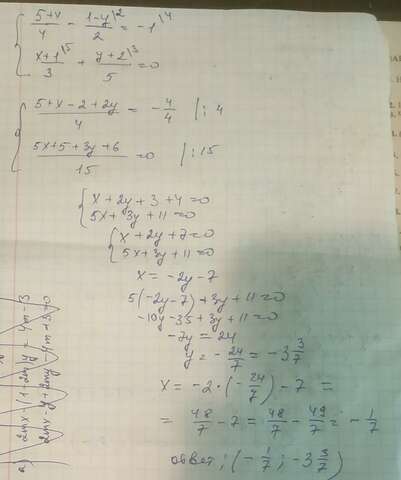 { (5+x)/4 - (1-y)/2 |2 = -1 |4
{ (x+1)/3 |5 + (y+2)/5 |3 = 0
{ (5+x-2+2y)/4 = -4/4 |:4
{ (5x+5+3y+6)/15 = 0 |:15
{ x+2y+3+4=0
{ 5x+3y+11=0
{ x+2y+7=0
{ 5x+3y+11=0
x = -2y-7
5(-2y-7)+3y+11=0
-10y-35+3y+11=0
-7y = 24
y = -24/7 = -3 3/7
x = -2·(-24/7) - 7 =
= 48/7 - 7 = 48/7 - 49/7 = -1/7
ответ; (-1/7; -3 3/7)
а) 2mx-(1-2m)y = 4m-3
2mx-y+2my-4m+3=0